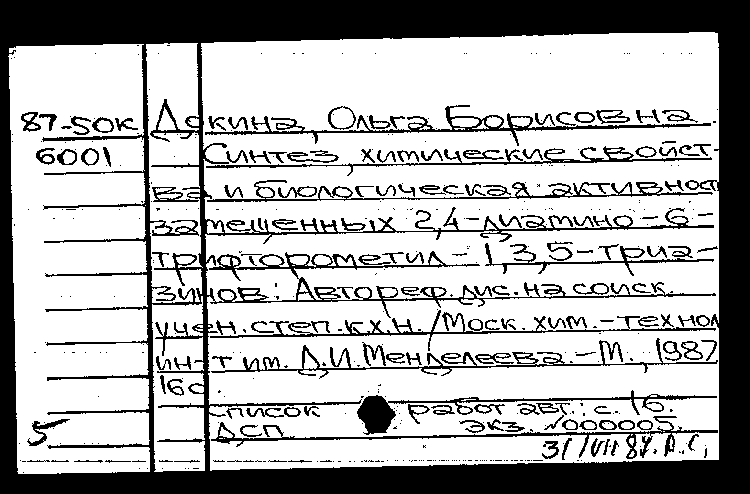 87-50к Дякина, Ольга Борисовна.
6001 Синтез, химические свойст-
ва и биологическая активност
замещенных 2,4-диамино-6-
трифторометил-1,3,5-триа-
зинов: Автореф. дис. на соиск.
учен. степ. к.х.н. /Моск. хим.-технол
ин-т им. Д.И. Менделеева.-М., 1987
16с.
Список работ авт.: с. 16.
5 ДСП экз. №000005.
31/VII 87. Д.С,